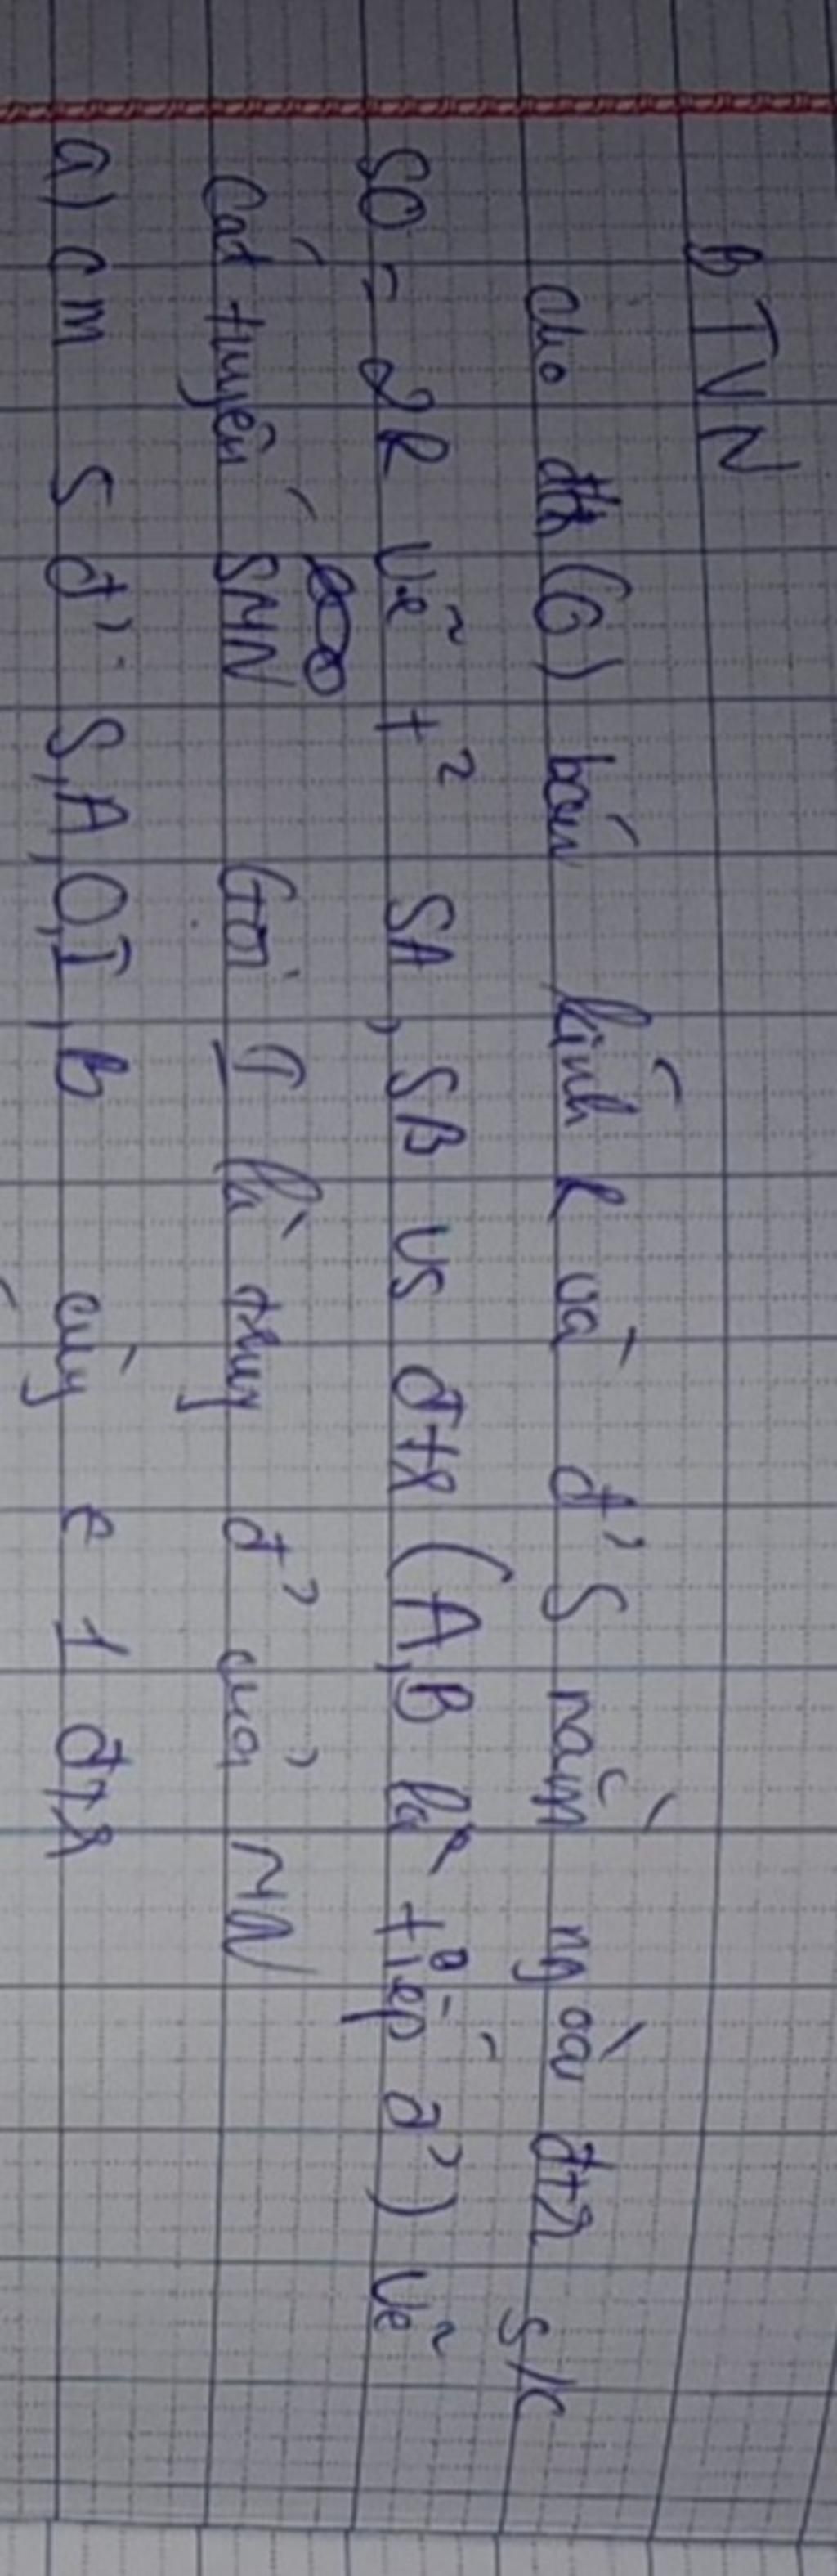 BTVN
Cho đtr (O) bán kính R và đ' S nằm ngoài đtr s/c
SO = 2R vẽ t² SA, SB vs đtr (A,B là tiếp đ') vẽ
Cát tuyến SMN Gọi I là trug đ' của MN
a) cm 5 đ': S,A,O,I,B cùg ∈ 1 đtr